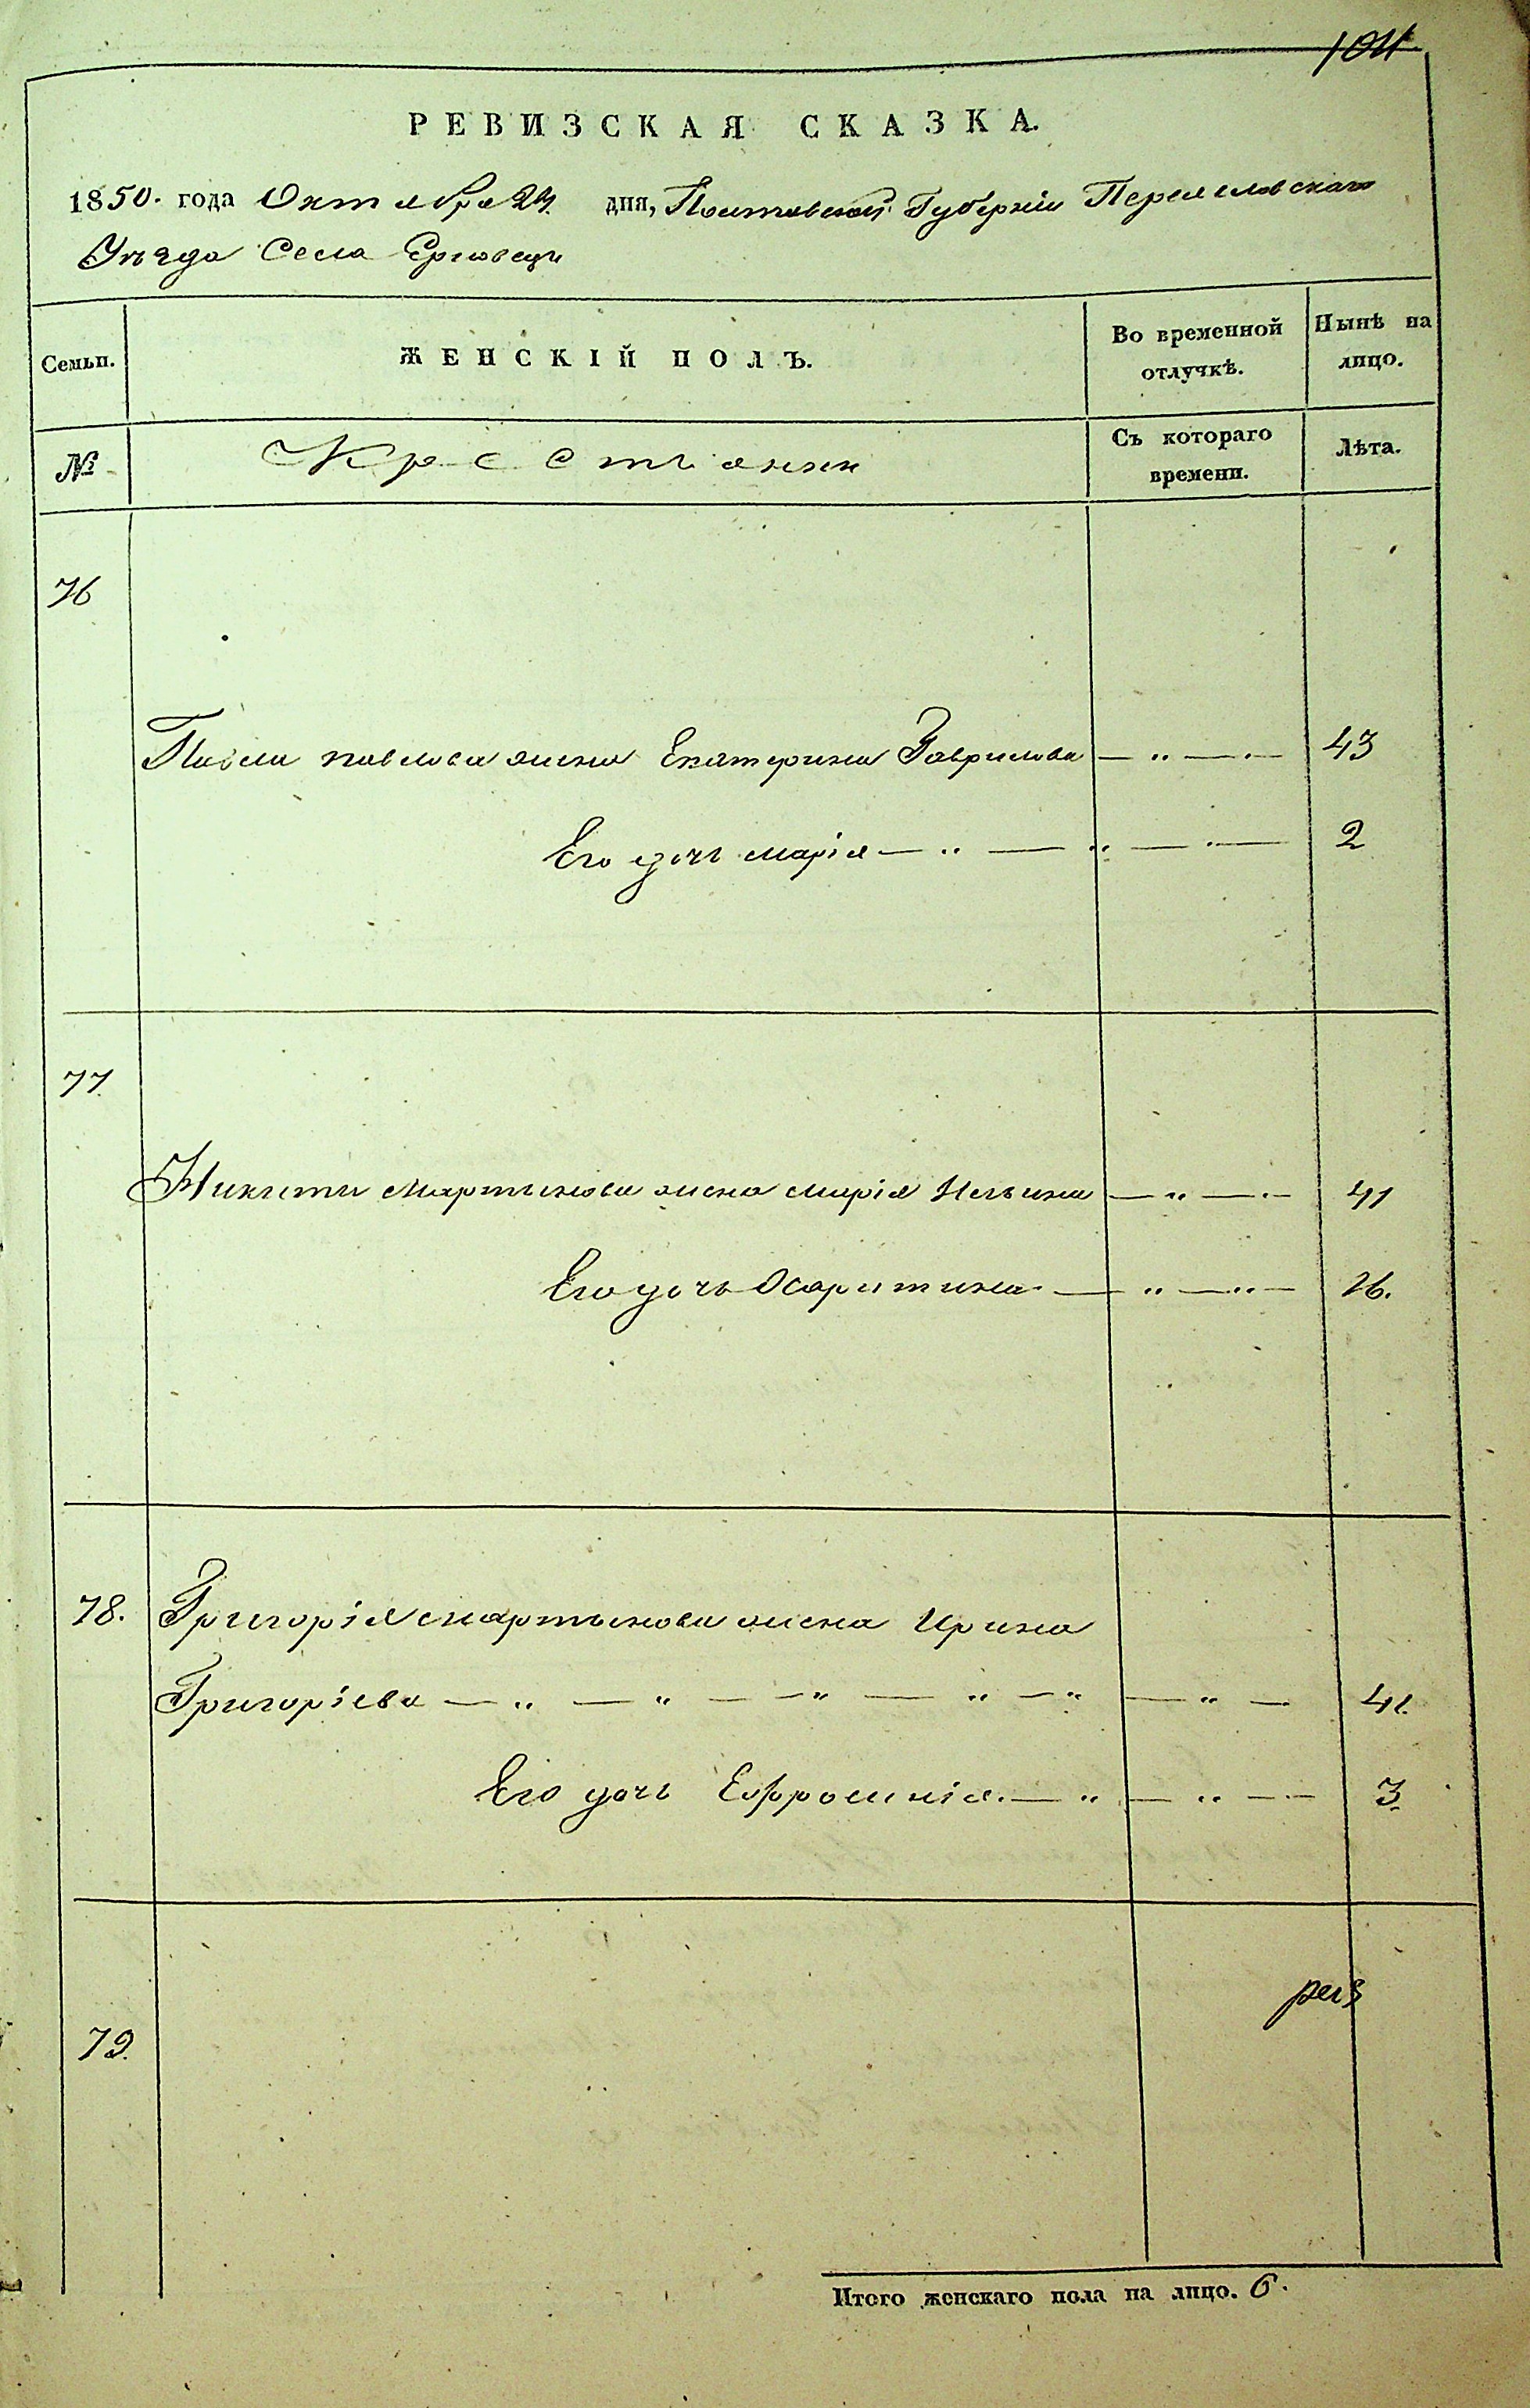 104
РЕВИЗСКАЯ СКАЗКА.
1850. года Октября 24. дня, Полтавской Губерніи Переяславскаго
Уѣзда Села Ерковецъ
Семьи. ЖЕНСКІЙ ПОЛЪ. Во временной отлучкѣ. Нынѣ на лицо.
№ Крестьянки Съ котораго времени. Лѣта.
76
Павла павлова жена Екатерина Гаврилова — „ — „ — 43
Его дочь марія — „ — „ — „ — 2
77.
Никиты мартынова жена марія Ильина — „ — „ — 41
Его дочь Харитина — „ — „ — 16.
78. Григорія мартынова жена Ирина
Григоріева — „ — „ — „ — „ — „ — „ — 41.
Его дочь Ефросинія. — „ — „ — „ — 3.
79.
Итого женскаго пола на лицо. 6.